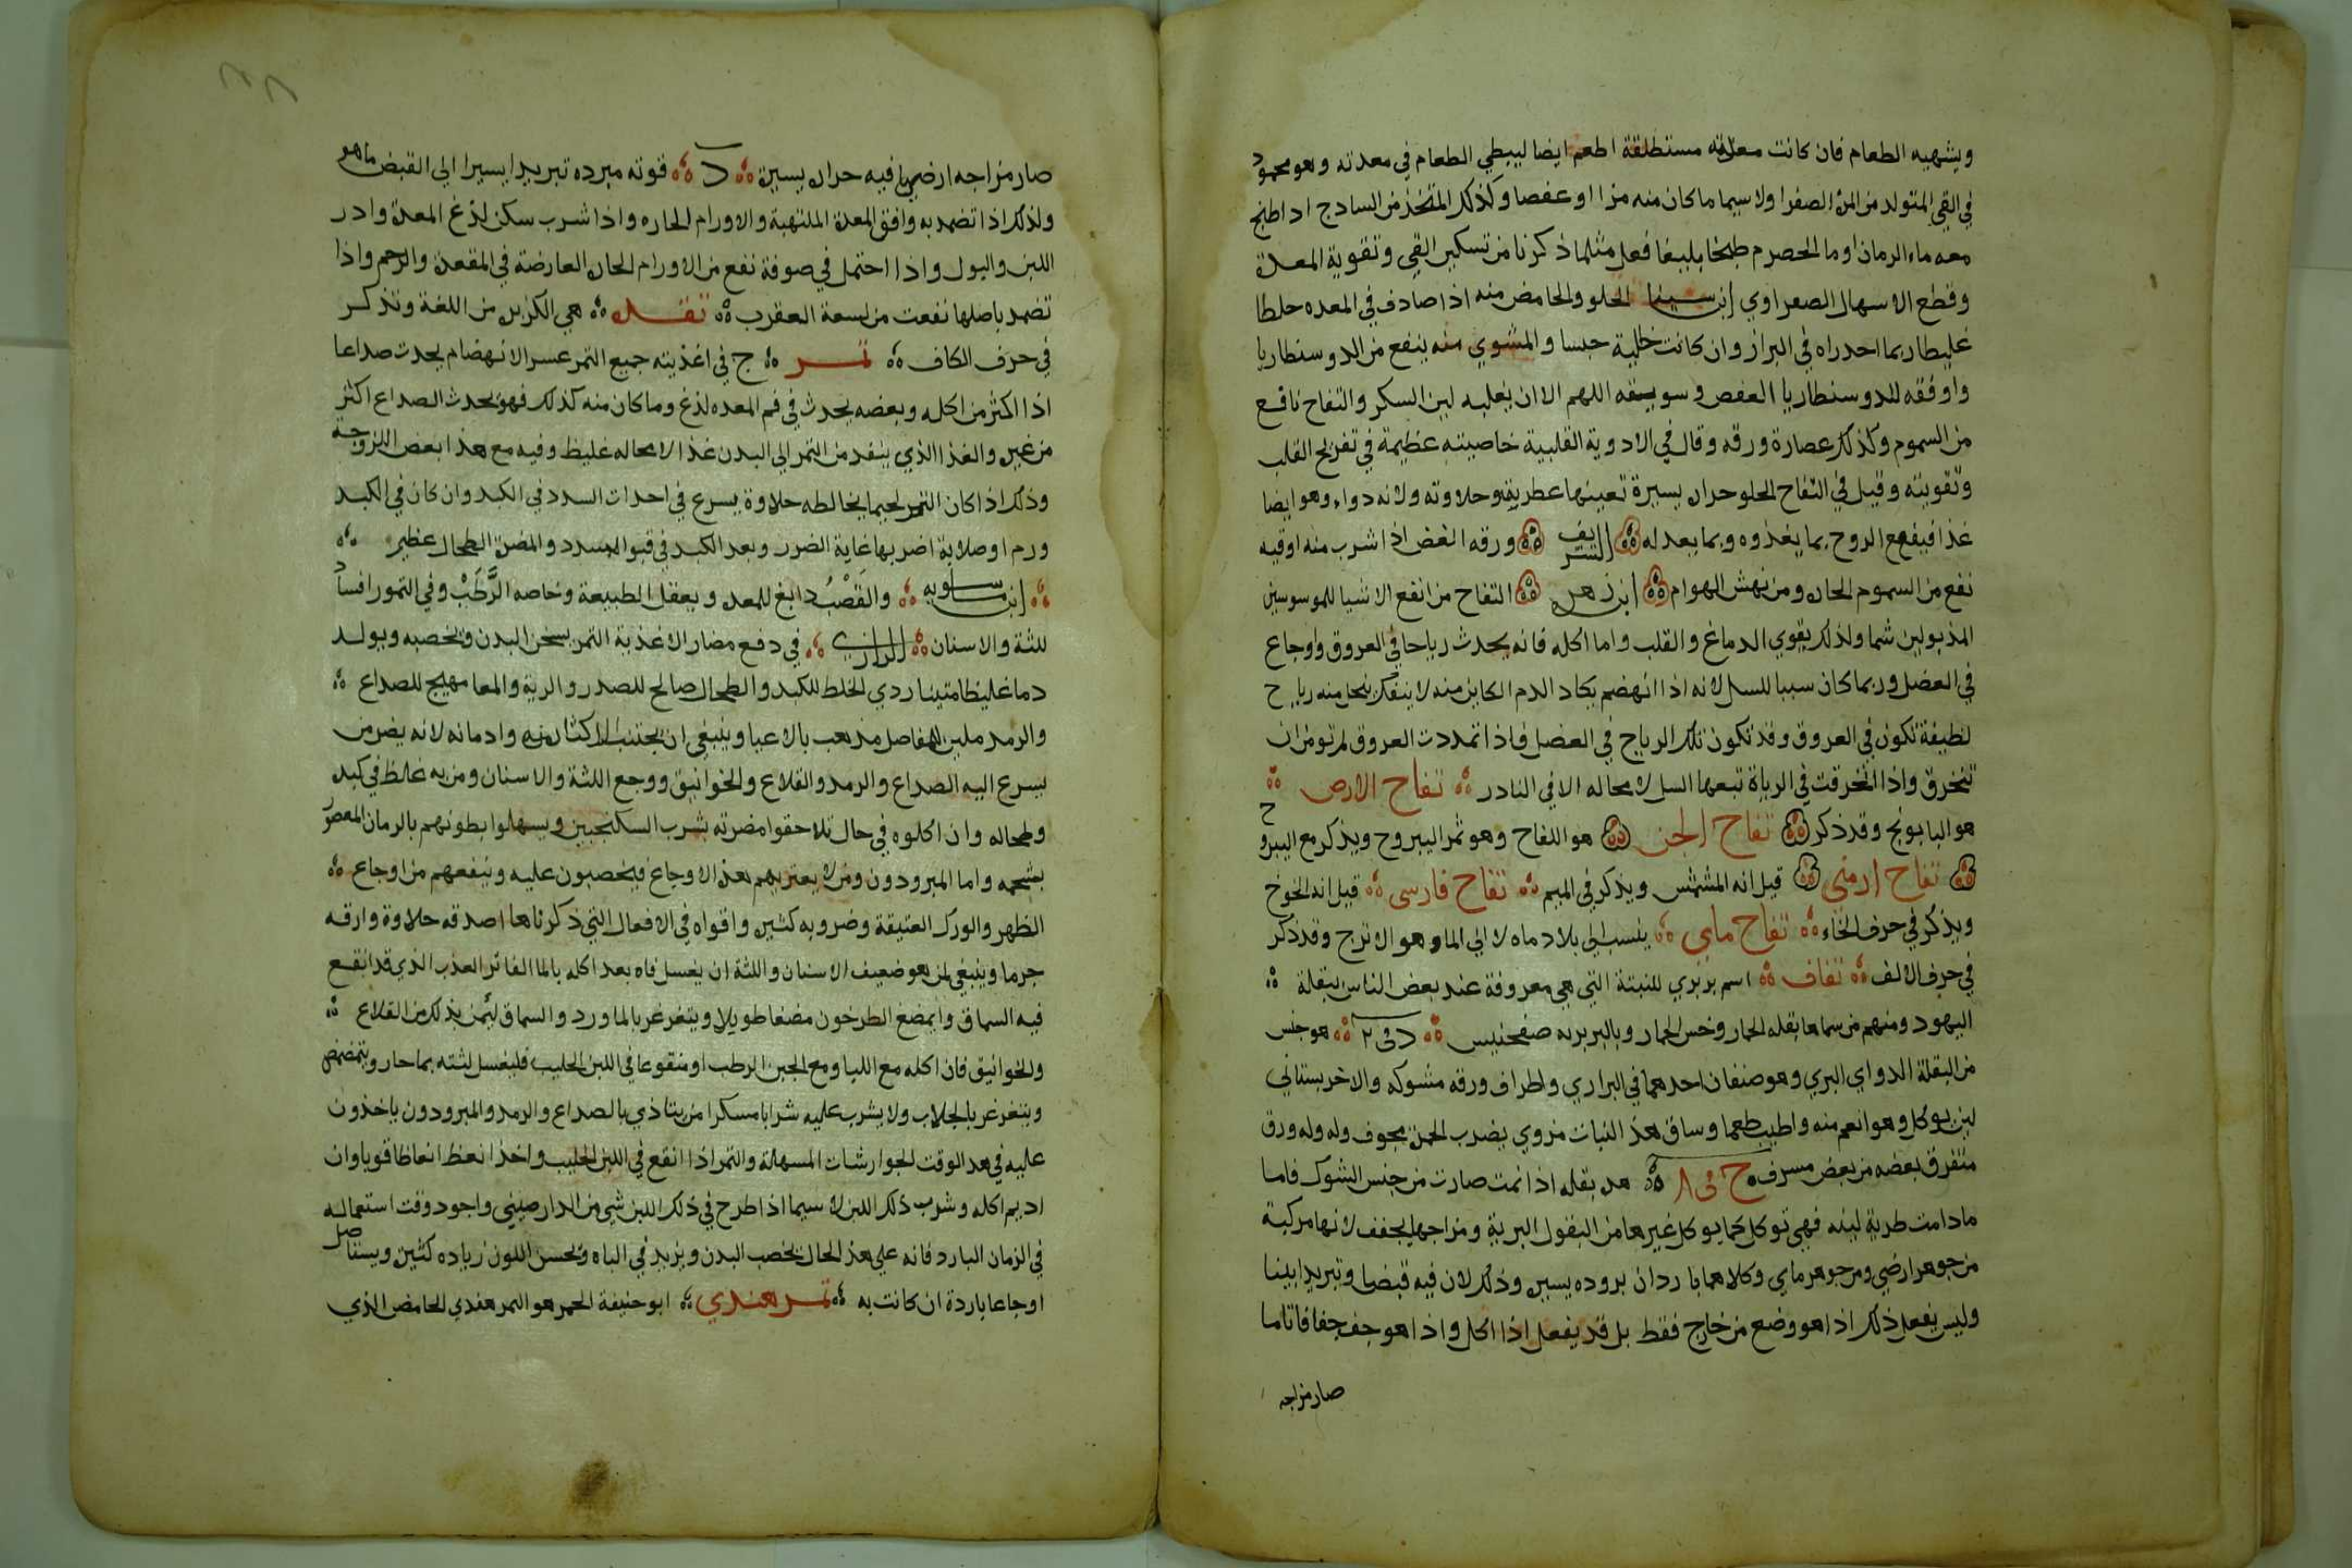 ويشهيه الطعام فان كانت معدته مستطلقة اطعم ايضا ليبطي الطعام في معدته وهو محمود
في القي المتولد من المرة الصفرا ولا سيما ما كان منه مزا او عفصا وكذلك المتخذ من السادج اذا طبخ
معه ماء الرمان او ما الحصرم طبخا بليغا فعل مثلما ذكرنا من تسكين القي وتقوية المعدة
وقطع الاسهال الصفراوي ابن سينا الحلو والحامض منه اذا صادف في المعده خلطا
غليظا ربما احدراه في البراز وان كانت خالية حبسا والمشوي منه ينفع من الدوسنطاريا
واوفقه للدوسنطاريا العفص وسويقه اللهم الا ان يغلبه لين السكر والتفاح نافع
من السموم وكذلك عصارة ورقه وقال في الادوية القلبية خاصيته عظيمة في تفريح القلب
وتقويته وقيل في التفاح الحلو حرارة يسيرة تعينها عطريته وحلاوته ولانه دواء وهو ايضا
غذا فينفع الروح بما يغذوه وبما يعدله الشريف وورقه الغض اذا شرب منه اوقيه
نفع من السموم الحارة ومن نهش الهوام ابن زهر التفاح من انفع الاشيا للموسوسين
المذبولين شما ولذلك يقوي الدماغ والقلب واما اكله فانه يحدث رياحا في العروق واوجاع
في العضل وربما كان سببا للسل لانه اذا انهضم يكاد الدم الكاين منه لا ينفك ينحل منه رياح
لطيفة تكون في العروق وقد تكون تلك الرياح في العضل فاذا تمددت العروق لم تومن ان
تنخرق واذا انخرقت في الرياة تبعها السل لا محاله الا في النادر تفاح الارض
هو البابونج وقد ذكر تفاح الجن هو اللفاح وهو ثمر اليبروح ويذكر مع اليبروح
تفاح ارمني قيل انه المشمش ويذكر في الميم تفاح فارسى قيل انه الخوخ
ويذكر في حرف الخاء تفاح مايي ينسب الى بلاد ماه لا الي الما وهو الاترج وقد ذكر
في حرف الالف تفاف اسم بربري للنبتة التي هي معروفة عند بعض الناس ببقلة
اليهود ومنهم من سماها بقله الحمار وخس الحمار وبالبربريه د في ٢ هو جنس
من البقلة الدواي البري وهو صنفان احدهما في البراري واطراف ورقه مشوكه والاخر بستاني
لين يوكل وهو انعم منه واطيب طعما وساق هذا النبات مزوي يضرب لحمرة مجوف وله وله ورق
متفرق بعضه من بعض مسرف ح في ٨ هذه بقله اذا نمت صارت من جنس الشوك فاما
مادامت طرية لينه فهي توكل كما يوكل غيرها من البقول البرية ومزاجها يجفف لانها مركبة
من جوهر ارضي ومن جوهر ماي وكلاهما باردان بروده يسيرة وذلك لان فيه قبضا وتبريدا بينا
وليس يفعل ذلك اذا هو وضع من خارج فقط بل قد يفعل اذا اكل واذا هو جف جفافا تاما
صار مزاجه
صار مزاجه ارضيا فيه حرارة يسيرة د قوته مبرده تبريدا يسيرا الي القبض ما هو
ولذلك اذا تضمد به وافق المعدة الملتهبة والاورام الحاره واذا شرب سكن لذغ المعدة وادر
اللبن والبول واذا احتمل في صوفة نفع من الاورام الحارة العارضة في المقعدة والرحم واذا
تضمد باصلها نفعت من لسعة العقرب تقده هي الكزبرة من اللغة وتذكر
في حرف الكاف تمر ج في اغذيته جميع التمر عسر الانهضام يحدث صداعا
اذا اكثر من اكله وبعضه يحدث في فم المعده لذغ وما كان منه كذلك فهو يحدث الصداع اكثر
من غيره والغذا الذي ينفد من التمر الي البدن غذا لا محاله غليظ وفيه مع هذا بعض اللزوجة
وذلك اذا كان التمر لحيما يخالطه حلاوة يسرع في احداث السدد في الكبد وان كان في الكبد
ورم او صلابة اضر بها غاية الضرر وبعد الكبد في قبول السدد والمضرة الطحال عظيم
ابن ماسويه والقصب دابغ للمعدة ويعقل الطبيعة وخاصه الرطب وفي التمور افساد
للثة والاسنان الرازي في دفع مضار الاغذية التمر يسخن البدن ويخصبه ويولد
دما غليظا متينا ردي الخلط للكبد والطحال صالح للصدر والرية والمعا مهيج للصداع
والرمد ملين للمفاصل مذهب بالاعيا وينبغي ان يجتنب الاكثار منه وادمانه لانه يضر من
يسرع اليه الصداع والرمد والقلاع والخوانيق ووجع اللثة والاسنان ومن به غلظ في كبده
وطحاله وان اكلوه في حال تلاحقوا مضرته بشرب السكنجبين ويسهلوا بطونهم بالرمان المعصور
بشحمه واما المبرودون ومن لا يعتريهم هذه الاوجاع فيخصبون عليه وينفعهم من اوجاع
الظهر والورك العتيقة وضروبه كثيرة واقواه في الافعال التي ذكرناها اصدقه حلاوة وارقه
جرما وينبغي لمن هو ضعيف الاسنان واللثة ان يغسل فاه بعد اكله بالما الفاتر العذب الذي قد انقع
فيه السماق وايمضغ الطرخون مضغا طويلا ويتغرغر بالماورد والسماق ليمن بذلك من القلاع
والخوانيق فان اكله مع اللبا ومع الجبن الرطب او منقوعا في اللبن الحليب فليغسل لثته بما حار ويتمضمض
ويتغرغر بالجلاب ولا يشرب عليه شرابا مسكرا من يتاذي بالصداع والرمد والمبرودون ياخذون
عليه في هذا الوقت الجوارشات المسهلة والتمر اذا انقع في اللبن الحليب واخذ انعظ انعاظا قويا وان
اديم اكله وشرب ذلك اللبن لا سيما اذا طرح في ذلك اللبن شي من الدارصيني واجود وقت استعماله
في الزمان البارد فانه علي هذه الحال يخصب البدن ويزيد في الباه ويحسن اللون زياده كثيرة ويستاصل
اوجاعا باردة ان كانت به تمر هندي ابو حنيفة الحمر هو التمر هندي الحامض الذي